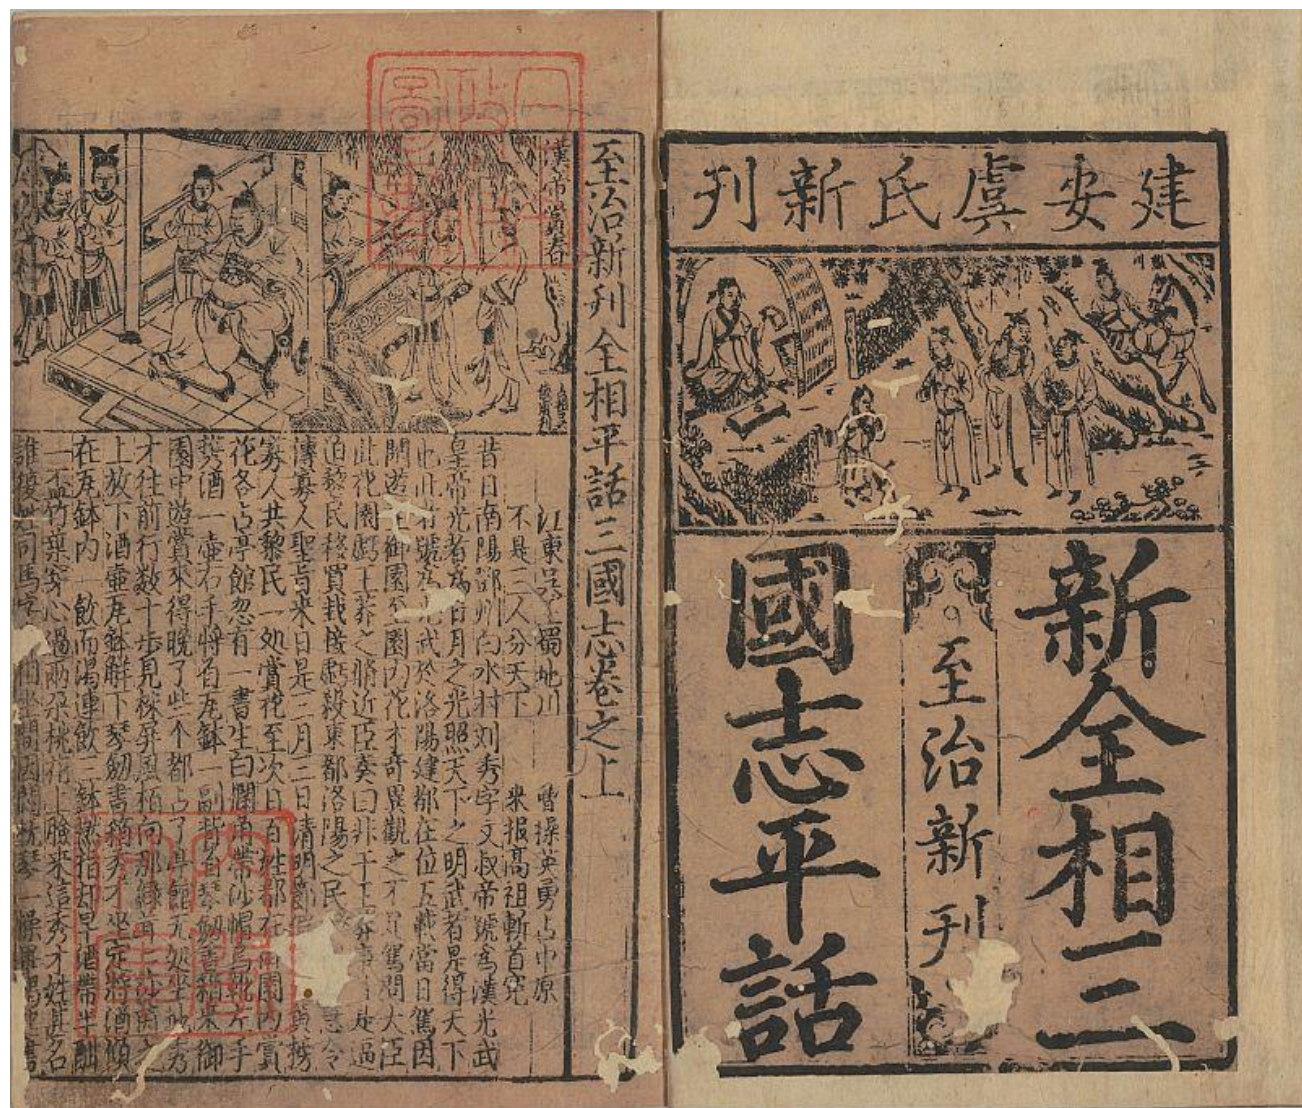 建安虞氏新刊
新全相三
至治新刊
國志平話
至治新刊全相平話三國志卷之上
漢帝賞春
江東吳土蜀地川 曹操英勇占中原
不是三人分天下 來报高祖斬首冤
昔日南陽鄧州白水村刘秀字文叔帝號為漢光武
皇帝光者為日月之光照天下之明武者是得天下
也此者號為光武於洛陽建都在位五載當日駕因
閑遊至御園至園內花木奇異觀之不足駕問大臣
此花園虧王莽之修近臣奏曰非干王莽事皆是逼
迫黎民移買栽接虧殺東都洛陽之民 急令
傳寡人聖旨來日是三月三日清明節 黃榜
寡人共黎民一処賞花至次日百姓都在御園內賞
花各占亭館忽有一書生白襴角帶沙帽烏靴左手
㩦酒一壺右手將着瓦鉢一副背着琴劒書箱來御
園中游賞來得晚了些个都占了亭館无処坐地秀
才往前行数十步見株屏風栢向那綠茵茵莎茵之
上放下酒壺瓦鉢解下琴劒書箱秀才坐定將酒傾
在瓦鉢內一飲而竭連飲三鉢撚指却早酒帶半酣
一盃竹葉穿心過兩朵桃花上臉來這秀才姓甚名
誰複姓司馬字 相坐間因悶撫琴一操畢揭起書